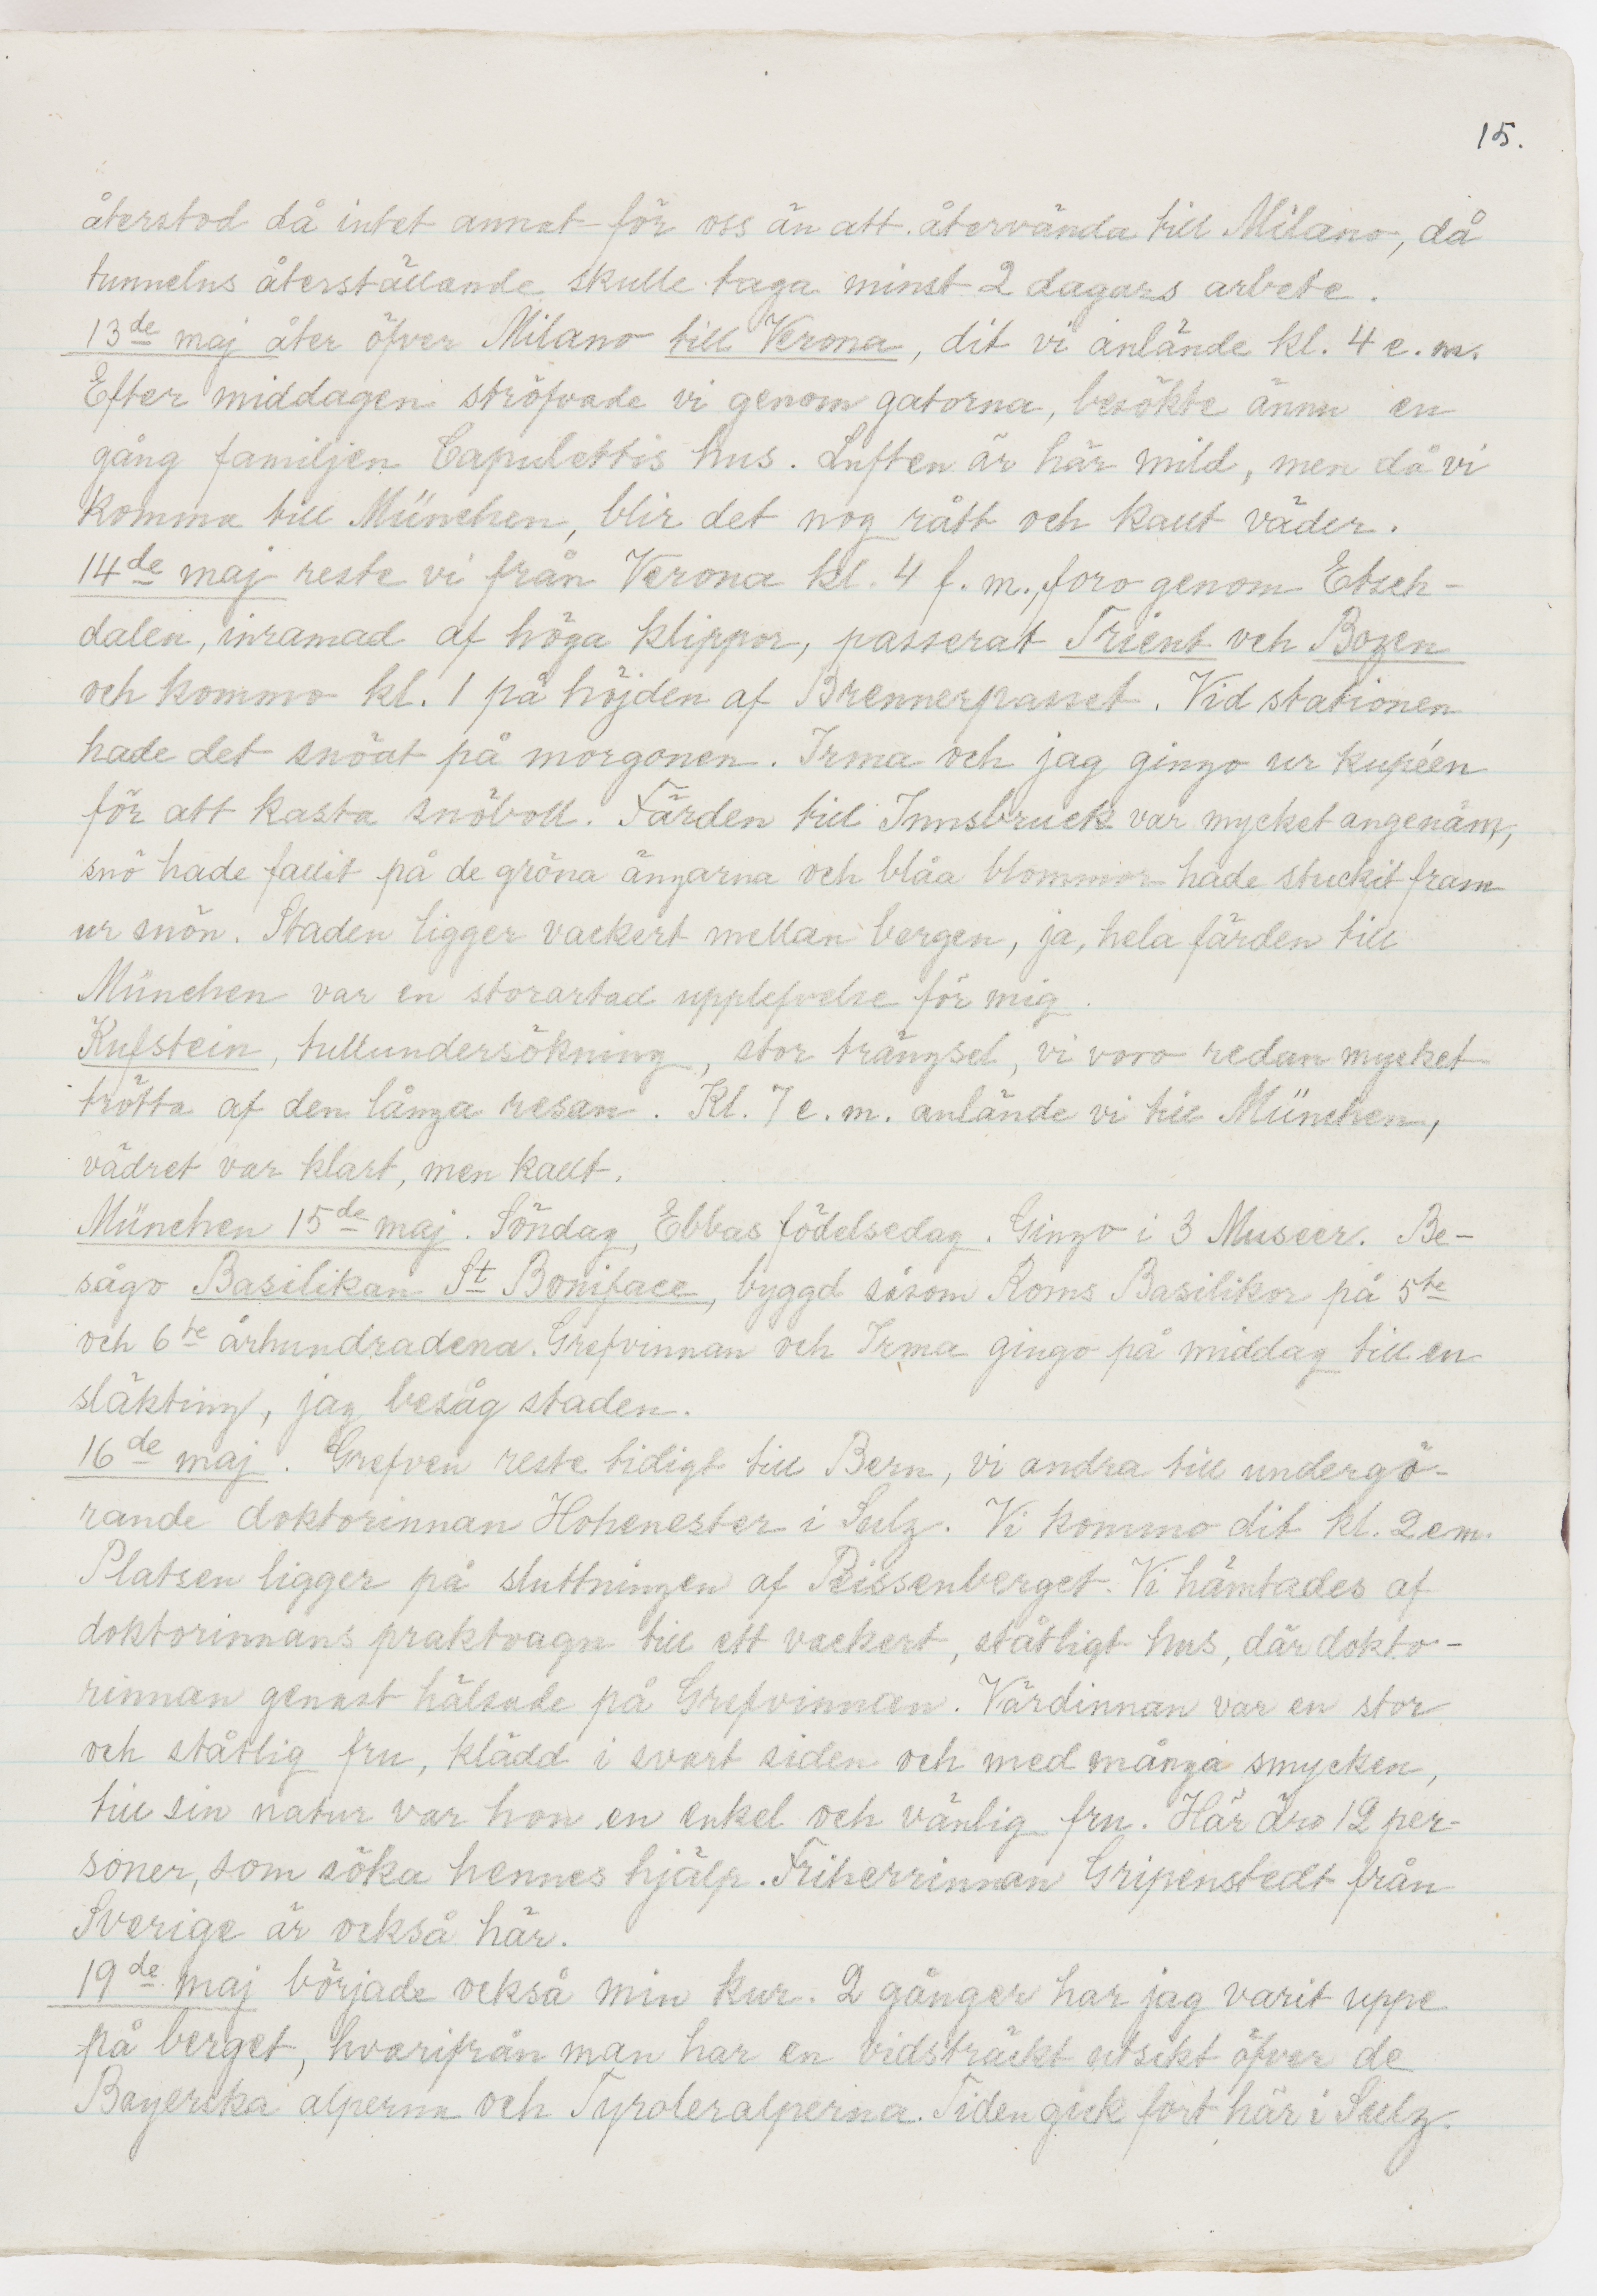 15.
återstod då intet annat för oss än att återvända till Milano, då
tunnelns återställande skulle taga minst 2 dagars arbete.
13de maj åter öfver Milano till Verona, dit vi anlände kl. 4 e.m.
Efter middagen ströfvade vi genom gatorna, besökte ännu en
gång familjen Capulettis hus. Luften är här mild, men då vi
komma till München, blir det nog rått och kallt väder.
14de maj reste vi från Verona kl. 4 f.m., foro genom Etsch-
dalen, inramad af höga klippor, passerat Trient och Bozen
och kommo kl. 1 på höjden af Brennerpasset. Vid stationen
hade det snöat på morgonen. Irma och jag gingo ur kupéen
för att kasta snöboll. Färden till Innsbruck var mycket angenäm,
snö hade fallit på de gröna ängarna och blåa blommor hade stuckit fram
ur snön. Staden ligger vackert mellan bergen, ja, hela färden till
München var en storartad upplefvelse för mig.
Kufstein, tullundersökning, stor trängsel, vi voro redan mycket
trötta af den långa resan. Kl. 7 e.m. anlände vi till München,
vädret var klart, men kallt.
München 15de maj. Söndag, Ebbas födelsedag. Gingo i 3 Museer. Be-
sågo Basilikan St Boniface, byggd såsom Roms Basilikor på 5te
och 6te århundradena. Grefvinnan och Irma gingo på middag till en
släkting, jag besåg staden.
16de maj. Grefven reste tidigt till Bern, vi andra till undergö-
rande doktorinnan Hohenester i Sulz. Vi kommo dit kl. 2 em.
Platsen ligger på sluttningen af Peissenberget. Vi hämtades af
doktorinnans praktvagn till ett vackert, ståtligt hus, där dokto-
rinnan genast hälsade på Grefvinnan. Värdinnan var en stor
och ståtlig fru, klädd i svart siden och med många smycken,
till sin natur var hon en enkel och vänlig fru. Här äro 12 per-
soner, som söka hennes hjälp. Friherrinnan Gripenstedt från
Sverige är också här.
19de maj började också min kur. 2 gånger har jag varit uppe
på berget, hvarifrån man har en vidsträckt utsikt öfver de
Bayerska alperna och Tyroleralperna. Tiden gick fort här i Sulz.